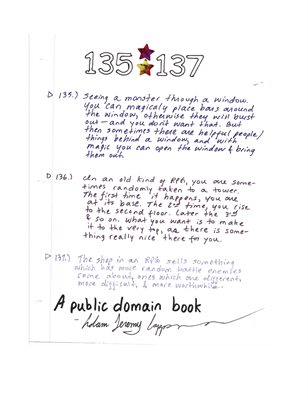 135 137
135.) Seeing a monster through a window.
You can magicaly place bars around
the window, otherwise they will burst
out—and you don't want that. But
then sometimes there are helpful people/
things behind a window, and with
magic you can open the window & bring
them out.
136.) In an old kind of RPG, you are some-
times randomly taken to a tower.
The first time it happens, you are
at its base. The 2nd time, you rise
to the second floor. Later the 3rd
& so on. What you want is to make
it to the very top, as there is some-
thing really nice there for you.
137.) The shop in an RPG sells something
which has more random battle enemies
come about, ones which are different,
more difficult, & more worthwhile.
A public domain book
- Adam Jeremy